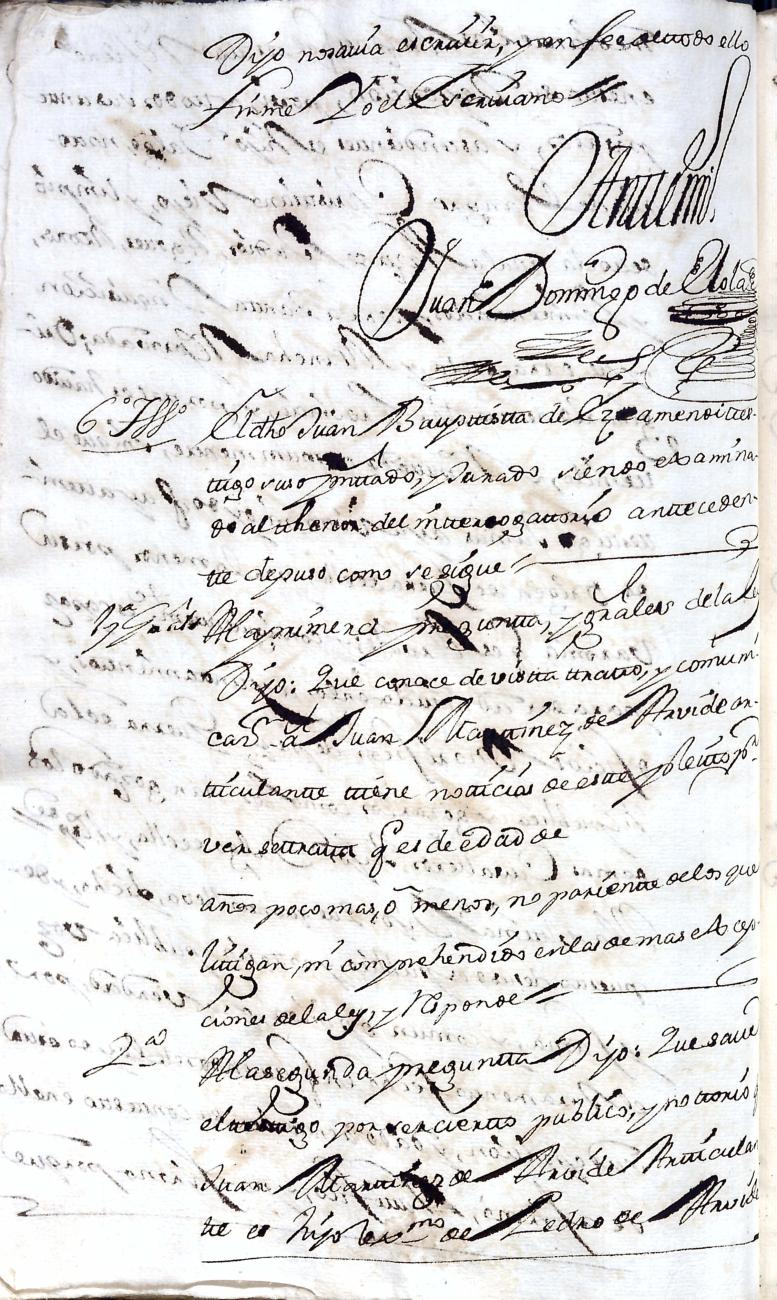 Dijo no savia escrivir, y en fee de todo ello
firme Yo el Escrivano
Antemi
Juan Domingo de
6º tsgº El dho Juan Bauptista de Eyzamendi tes-
tigo suso pnttado, y Jurado siendo examina-
do al thenor del interrogattorio anteceden-
te depuso como se sigue
1ª A la primera pregunta, y grales de la Ley
Dijo: Que conoce de vista tratto, y comuni-
caon a Juan Martinez de Arvide ar-
ticulante tiene noticias de este pleito pr
ver se tratta q es de edad de
años poco mas, o menos, no pariente de los que
littigan, ni comprehendido en las demas excep-
ciones de la ley, y responde
2ª A la segunda pregunta Dijo: Que save
el testigo, por ser cierto publico, y nottorio q
Juan Martinez de Arvide Articulan-
te es hijo lexmo de Pedro de Arvide